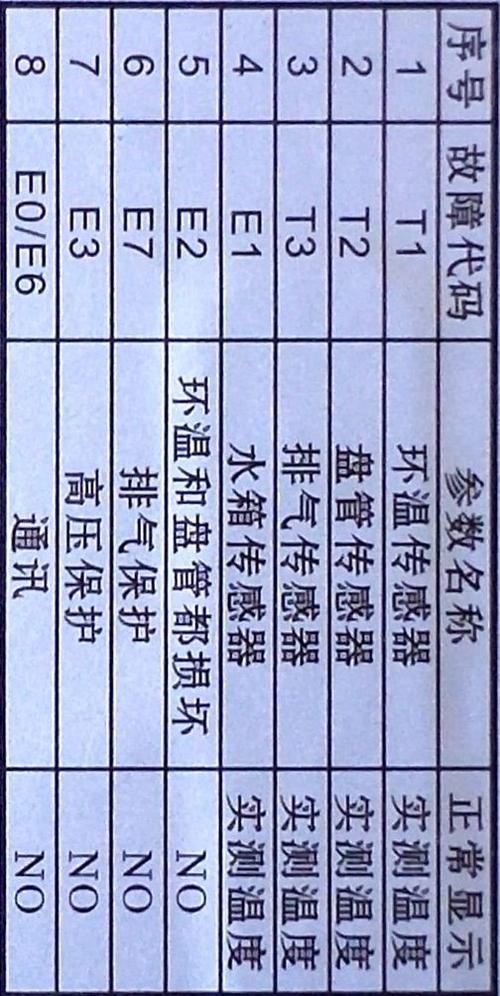 序号 故障代码 参数名称 正常显示
1 T1 环温传感器 实测温度
2 T2 盘管传感器 实测温度
3 T3 排气传感器 实测温度
4 E1 水箱传感器 实测温度
5 E2 环温和盘管都损坏 NO
6 E7 排气保护 NO
7 E3 高压保护 NO
8 E0/E6 通讯 NO